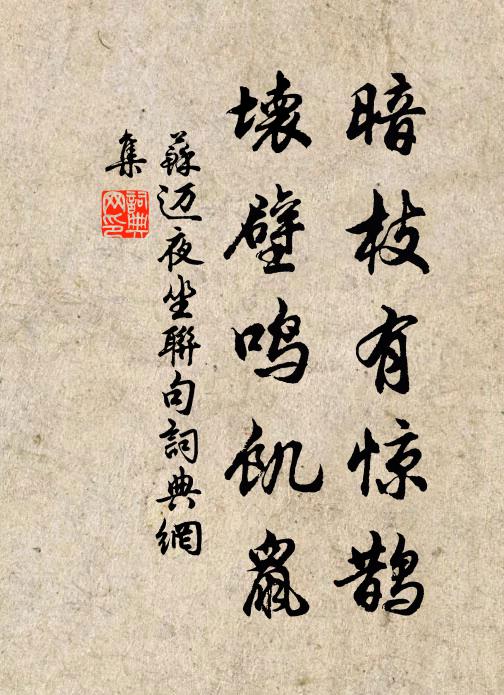 暗枝有惊鹊
坏壁鸣饥鼠
蘇迈夜坐聯句詞典網
集
詞典
网印